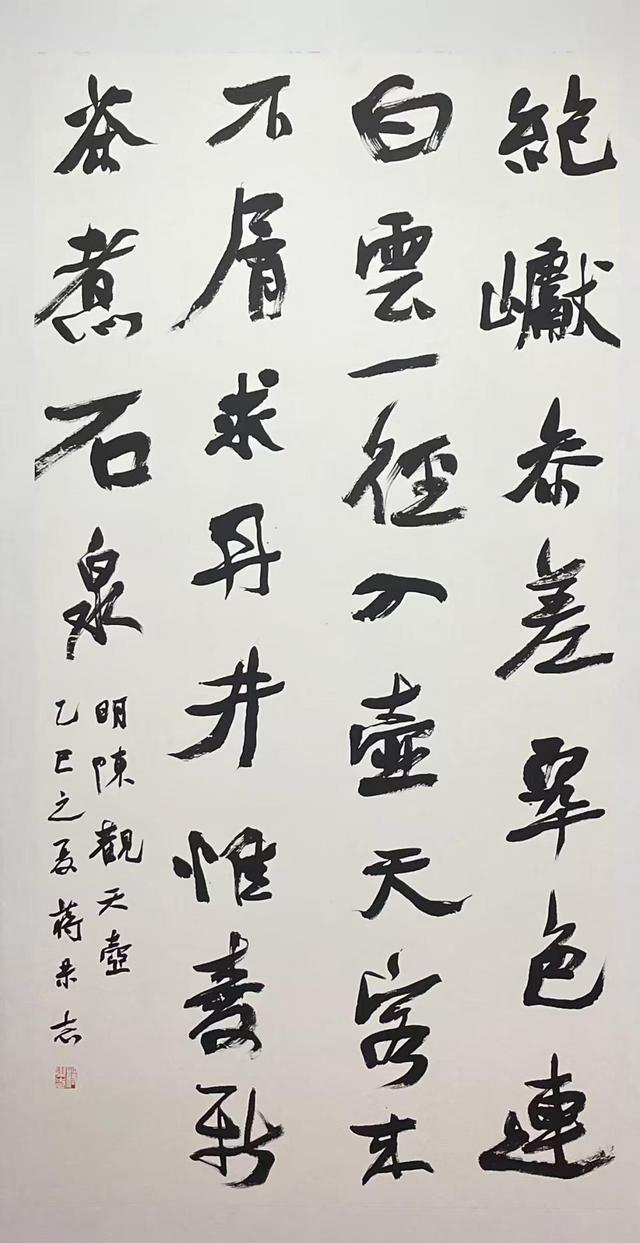 絶巘参差翠色連
白雲一徑入壺天客来
不屑求丹井惟愛新
茶煮石泉
明陳觀天壺
乙巳之夏蔣志